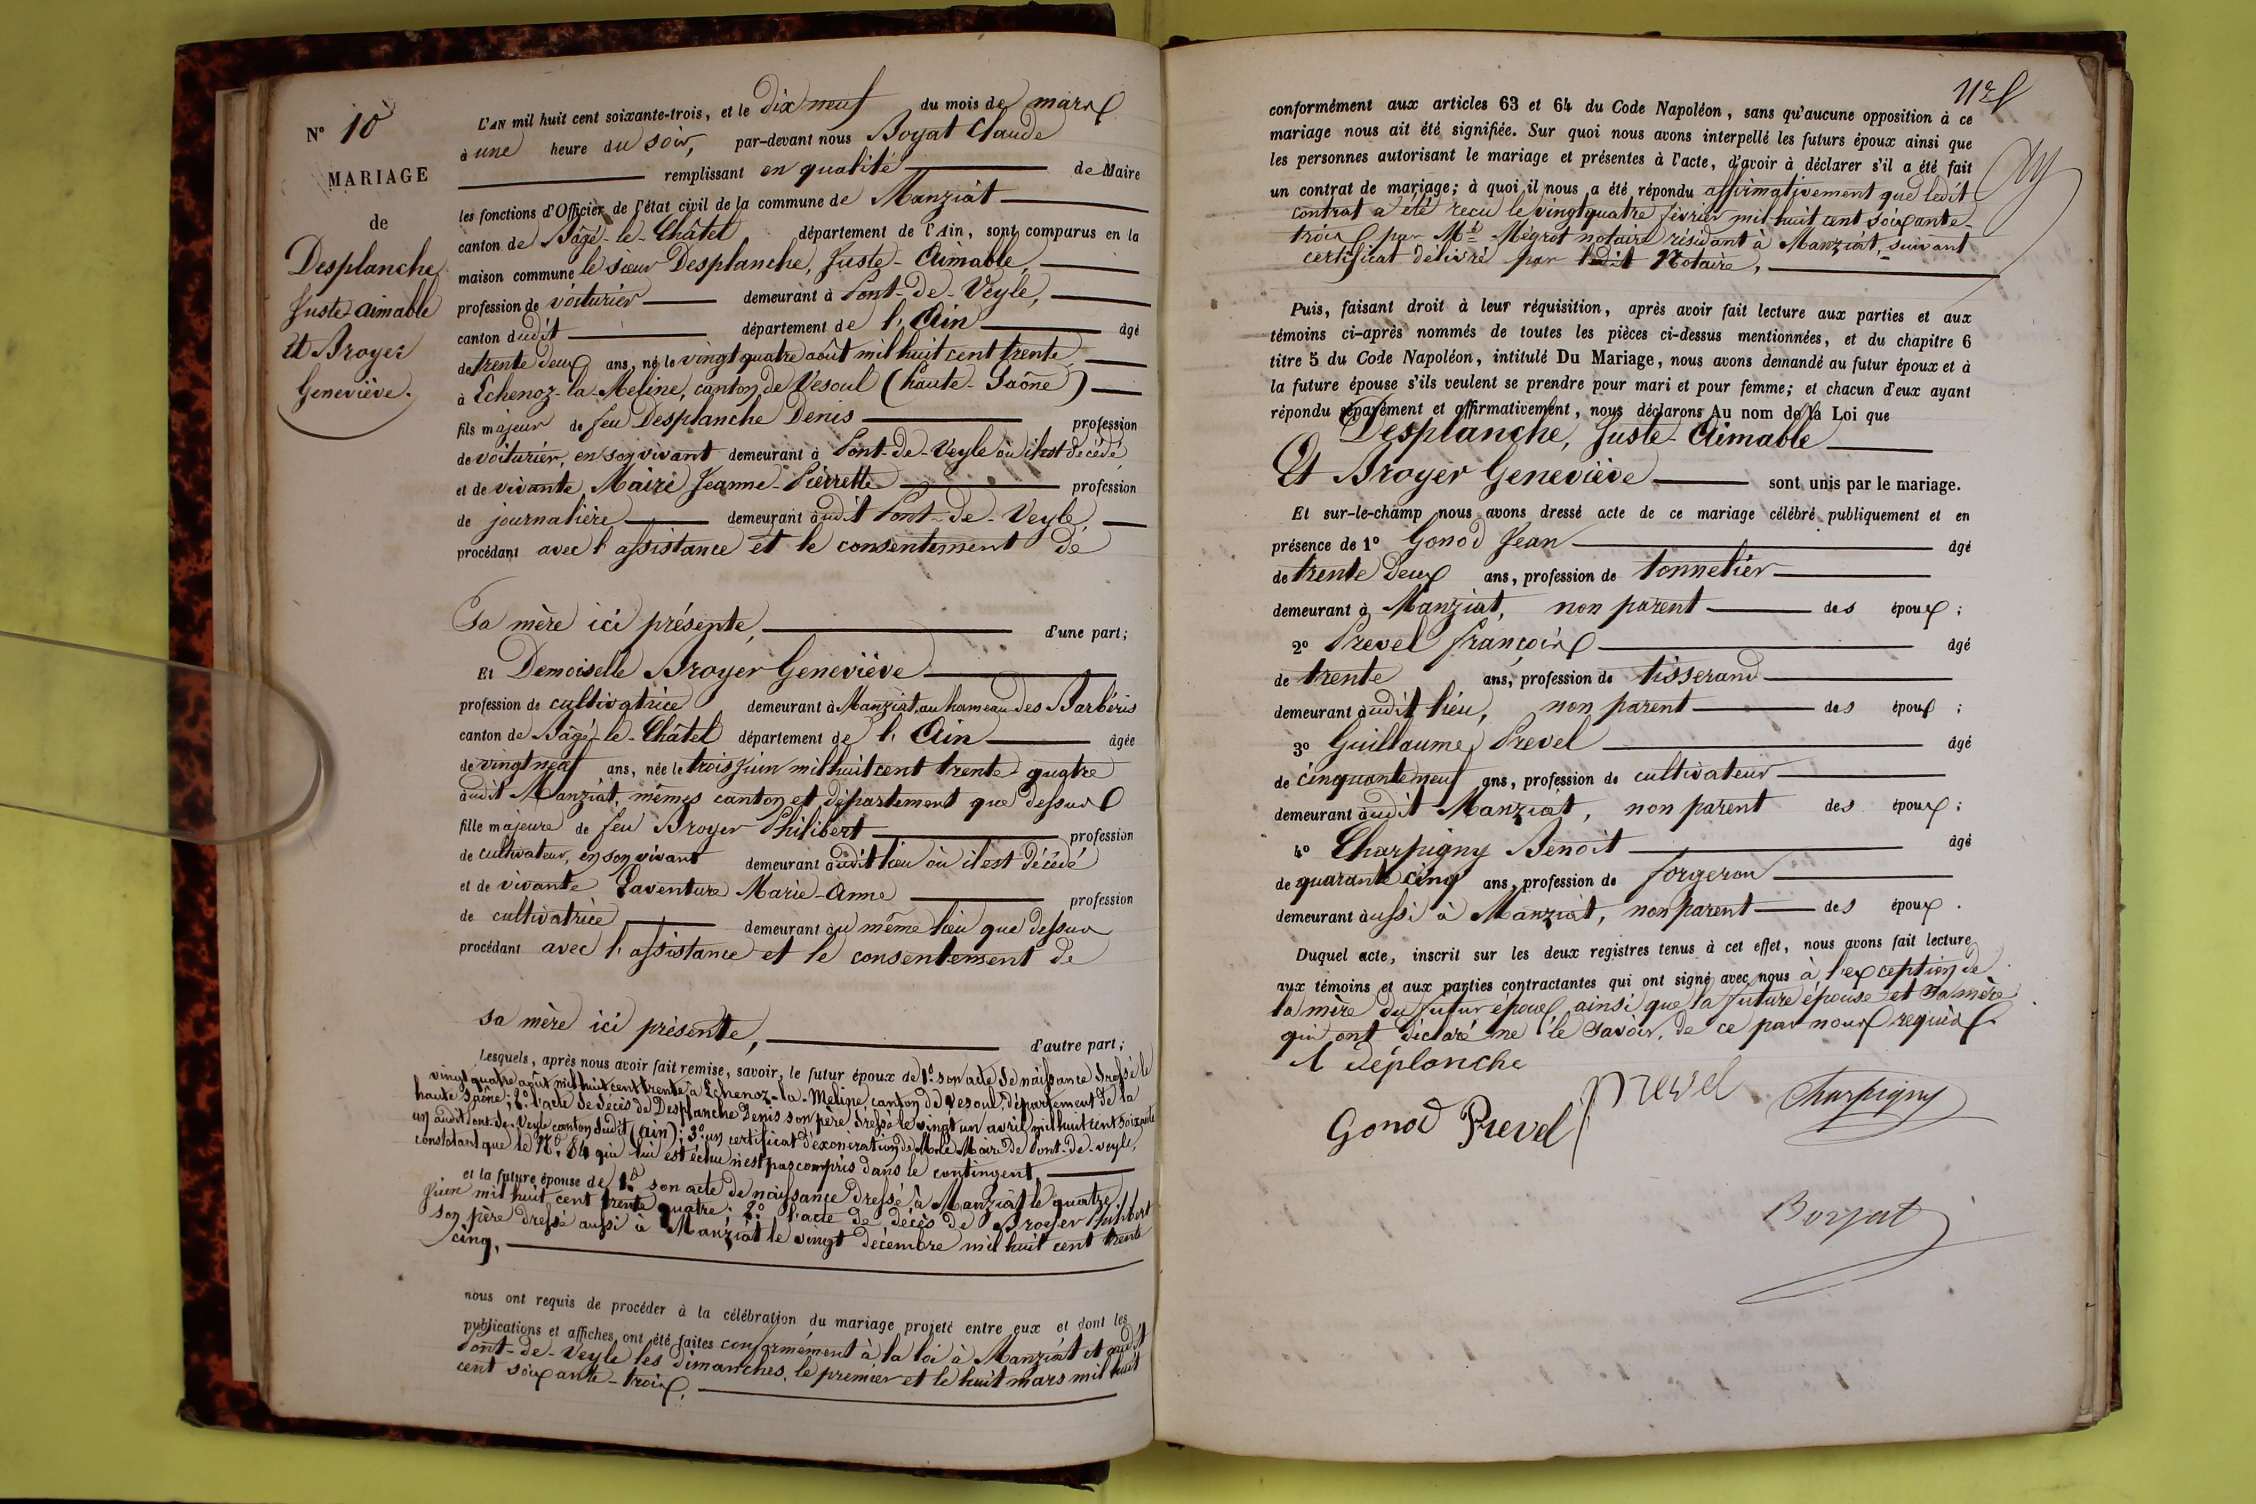 N° 10
MARIAGE
de
Desplanche
Juste Aimable
Et Broyer
Geneviève.
L'AN mil huit cent soixante-trois, et le dix neuf du mois de mars
à une heure du soir, par-devant nous Boyat Claude
remplissant en qualité de Maire
les fonctions d'Officier de l'état civil de la commune de Manziat
canton de Bâgé-le-Châtel département de l'Ain, sont comparus en la
maison commune le sieur Desplanche, Juste-Aimable,
profession de voiturier demeurant à Pont-de-Veyle,
canton dudit département de l'Ain âgé
de trente deux ans, né le vingt quatre août mil huit cent trente
à Echenoz-la-Meline, canton de Vesoul (haute-Saône)
fils majeur de feu Desplanche Denis profession
de voiturier, en son vivant demeurant à Pont-de-Veyle où il est décédé
et de vivante Maire Jeanne-Pierrette profession
de journalière demeurant audit Pont-de-Veyle,
procédant avec l'assistance et le consentement de
Sa mère ici présente, d'une part;
Et Demoiselle Broyer Geneviève
profession de cultivatrice demeurant à Manziat, au hameau des Barbéris
canton de Bâgé-le-Châtel département de l'Ain âgée
de vingt neuf ans, née le trois Juin mil huit cent trente-quatre
audit Manziat, mêmes canton et département que dessus
fille majeure de feu Broyer Philibert profession
de cultivateur, en son vivant demeurant audit lieu où il est décédé
et de vivante Laventure Marie-Anne profession
de cultivatrice demeurant au même lieu que dessus
procédant avec l'assistance et le consentement de
sa mère ici présente, d'autre part;
Lesquels, après nous avoir fait remise, savoir, le futur époux de 1° son acte de naissance dressé le
vingt quatre août mil huit cent trente à Echenoz-la-Meline, canton de Vesoul, département de la
haute Saône; 2° l'acte de décès de Desplanche Denis son père dressé le vingt un avril mil huit cent soixante
un audit Pont-de-Veyle canton dudit (Ain); 3° un certificat d'exonération de M. le Maire de Pont-de-veyle,
constatant que le N° 84 qui lui est échu n'est pas compris dans le contingent,
et la future épouse de 1° son acte de naissance dressé à Manziat le quatre
Juin mil huit cent trente quatre; 2° l'acte de décès de Broyer Philibert
son père dressé aussi à Manziat le vingt décembre mil huit cent trente
cinq,
nous ont requis de procéder à la célébration du mariage projeté entre eux et dont les
publications et affiches ont été faites conformément à la loi à Manziat et audit
Pont-de-Veyle les dimanches, le premier et le huit mars mil huit
cent soixante-trois,
conformément aux articles 63 et 64 du Code Napoléon, sans qu'aucune opposition à ce
mariage nous ait été signifiée. Sur quoi nous avons interpellé les futurs époux ainsi que
les personnes autorisant le mariage et présentes à l'acte, d'avoir à déclarer s'il a été fait
un contrat de mariage; à quoi il nous a été répondu affirmativement que ledit
contrat a été reçu le vingt quatre février mil huit cent soixante-
trois par Me Mégrot notaire résidant à Manziat, suivant
certificat délivré par ledit Notaire,
Puis, faisant droit à leur réquisition, après avoir fait lecture aux parties et aux
témoins ci-après nommés de toutes les pièces ci-dessus mentionnées, et du chapitre 6
titre 5 du Code Napoléon, intitulé Du Mariage, nous avons demandé au futur époux et à
la future épouse s'ils veulent se prendre pour mari et pour femme; et chacun d'eux ayant
répondu séparément et affirmativement, nous déclarons Au nom de la Loi que
Desplanche, Juste-Aimable
Et Broyer Geneviève sont unis par le mariage.
Et sur-le-champ nous avons dressé acte de ce mariage célébré publiquement et en
présence de 1° Gonod Jean âgé
de trente deux ans, profession de tonnelier
demeurant à Manziat, non parent des époux;
2° Prevel François âgé
de trente ans, profession de tisserand
demeurant audit lieu, non parent des époux;
3° Guillaume Prevel âgé
de cinquante neuf ans, profession de cultivateur
demeurant audit Manziat, non parent des époux;
4° Charpigny Benoit âgé
de quarante cinq ans, profession de forgeron
demeurant aussi à Manziat, non parent des époux.
Duquel acte, inscrit sur les deux registres tenus à cet effet, nous avons fait lecture
aux témoins et aux parties contractantes qui ont signé avec nous à l'exception de
la mère du futur époux ainsi que la future épouse et sa mère
qui ont déclaré ne le savoir, de ce par nous requis.
déplanche
Prevel Charpigny
Gonod Prevel
Boyat